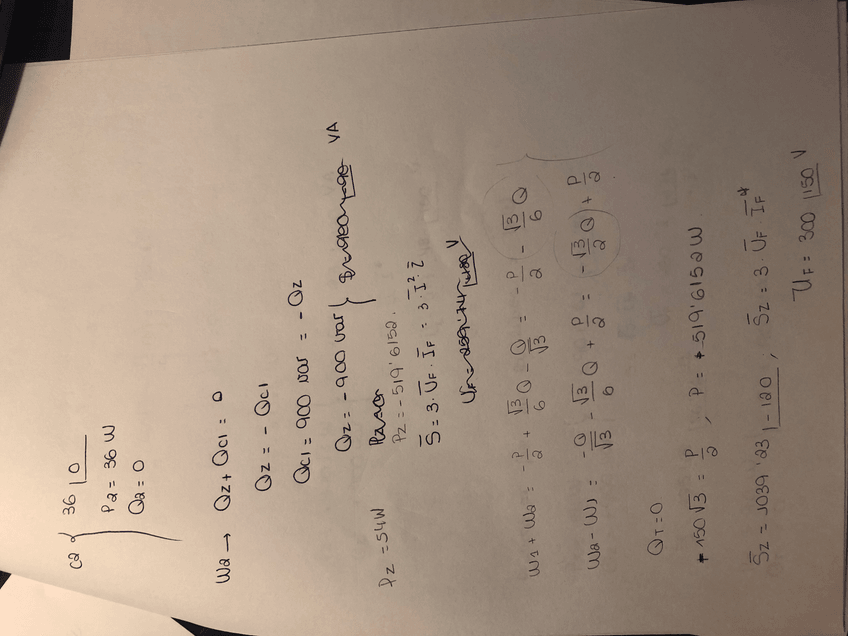 C2 { 36 |0
P2 = 36 W
Q2 = 0
W2 → Qz + Qc1 = 0
Qz = - Qc1
Qc1 = 900 var = - Qz
Qz = - 900 var } VA
Pz = 54W
Pz = - 519'6152.
S̄ = 3 · ŪF · ĪF = 3 · Ī² · Z̄
W1 + W2 = -P/2 + √3/6 Q - Q/√3 = -P/2 - √3/6 Q
W2 - W1 = -Q/√3 - √3/6 Q + P/2 = -√3/2 Q + P/2
QT = 0
150√3 = P/2 , P = 519'6152 W.
S̄z = 1039'23 |-120 , S̄z = 3 · ŪF · ĪF*
ŪF = 300 |150 V